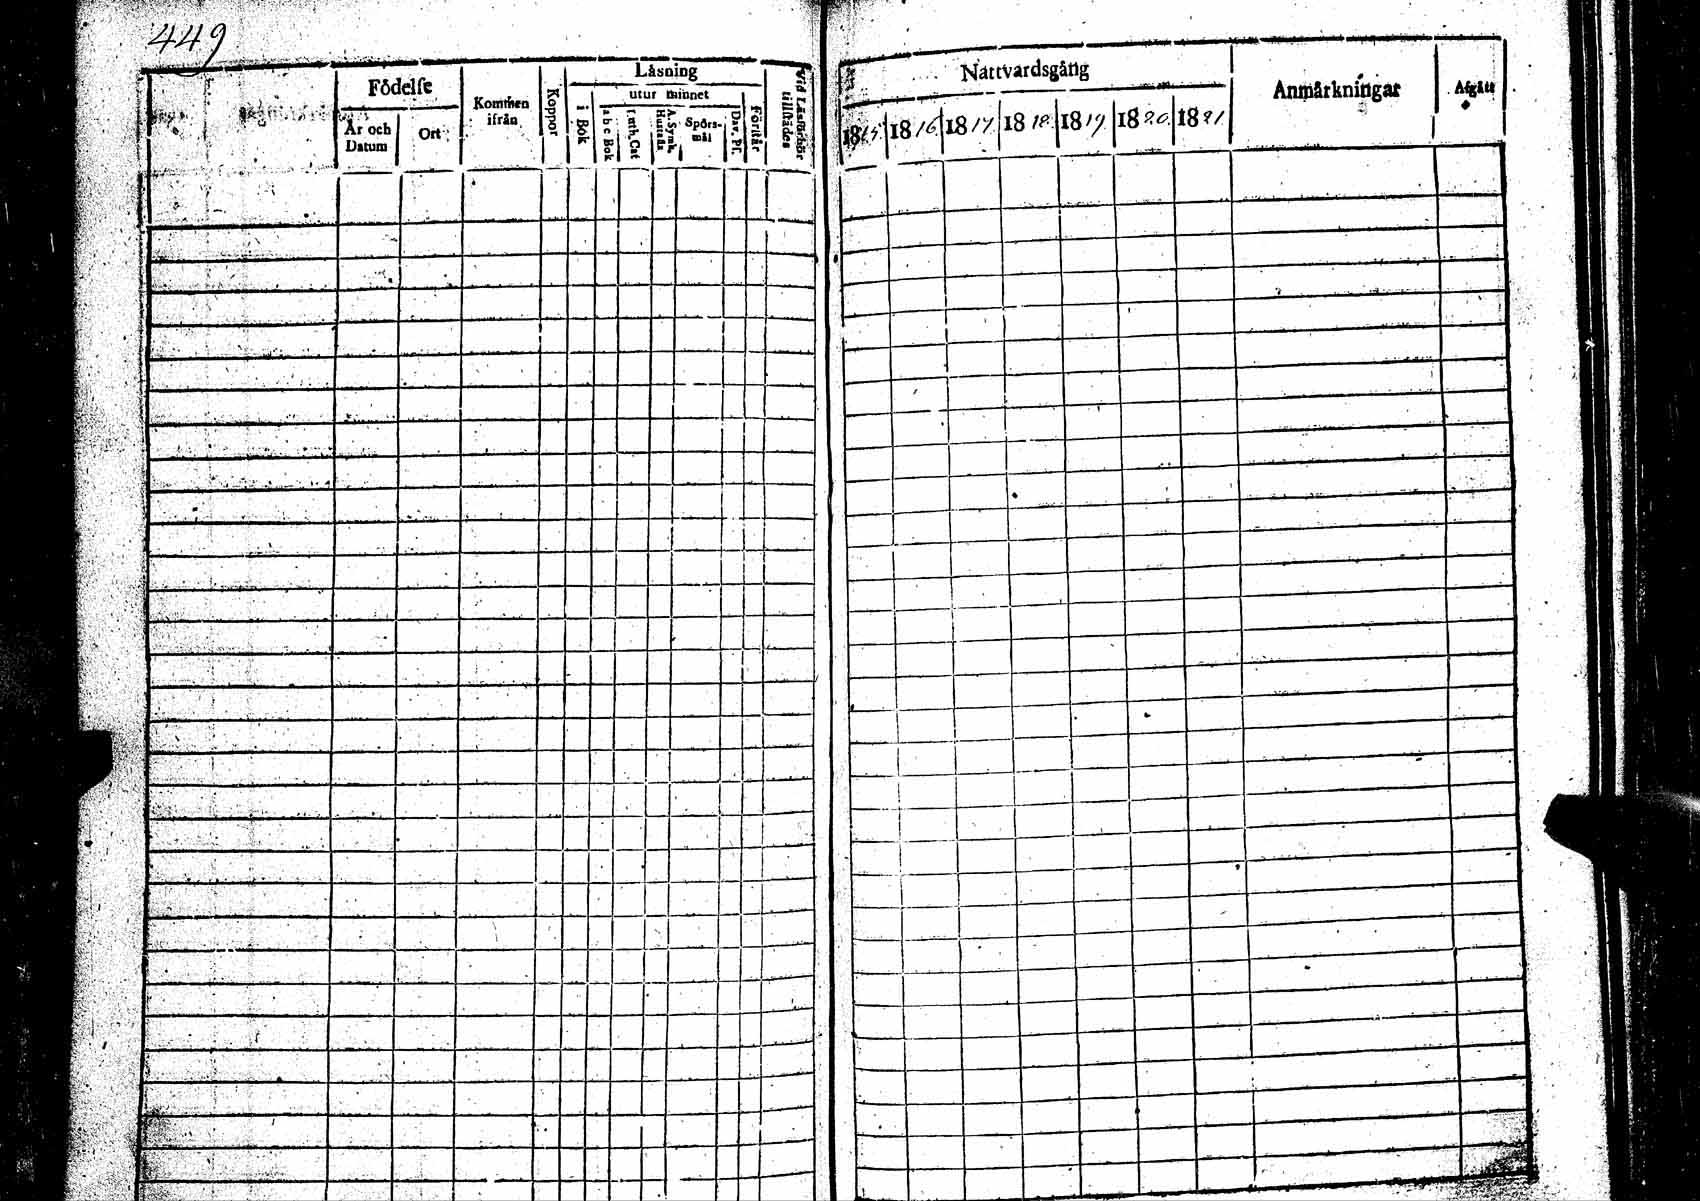 449
Födelse
År och Datum
Ort
Kommen ifrån
Koppor
Läsning
i Bok
utur minnet
a b c Bok
Spörsmål
Dav. Ps.
Förstår
Vid Läsförhör tillstädes
Nattvardsgång
1815 1816 1817 1818 1819 1820 1821
Anmärkningar
Afgått